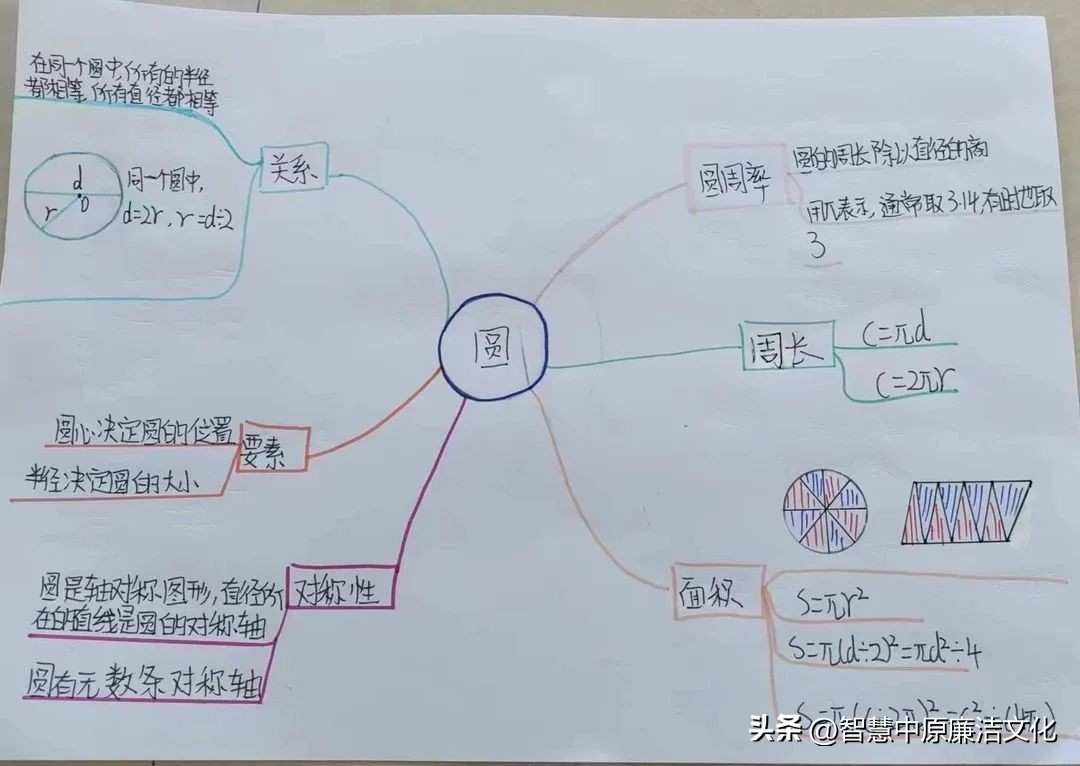 在同一个圆中,所有的半径
都相等,所有直径都相等
关系
d
O
r
同一个圆中,
d=2r, r=d÷2
圆周率
圆的周长除以直径的商
用π表示,通常取3.14,有时也取
3
圆
周长
C=πd
C=2πr
圆心决定圆的位置
要素
半径决定圆的大小
圆是轴对称图形,直径所
在的直线是圆的对称轴
对称性
圆有无数条对称轴
面积
S=πr²
S=π(d÷2)²=πd²÷4
S=π(C÷2π)²=C²÷(4π)
头条 @智慧中原廉洁文化